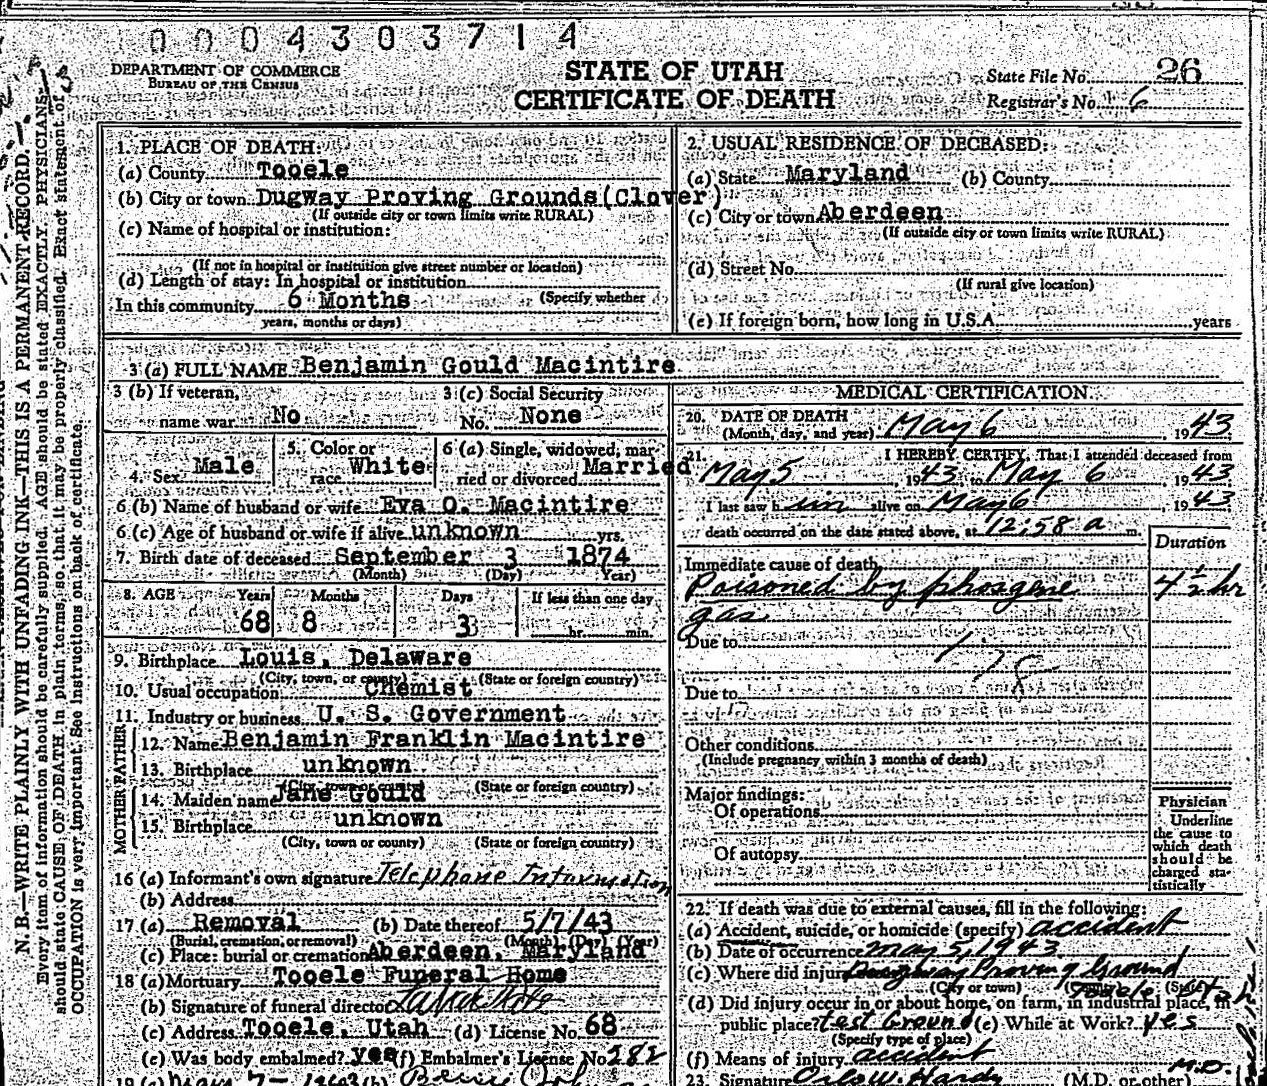 0004303714
DEPARTMENT OF COMMERCE
BUREAU OF THE CENSUS
STATE OF UTAH
CERTIFICATE OF DEATH
State File No. 26
Registrar's No. 6
N. B.—WRITE PLAINLY WITH UNFADING INK—THIS IS A PERMANENT RECORD.
Every item of information should be carefully supplied. AGE should be stated EXACTLY. PHYSICIANS
should state CAUSE OF DEATH in plain terms, so that it may be properly classified. Exact statement of
OCCUPATION is very important. See instructions on back of certificate.
1. PLACE OF DEATH:
(a) County Tooele
(b) City or town Dugway Proving Grounds(Clover)
(If outside city or town limits write RURAL)
(c) Name of hospital or institution:
(If not in hospital or institution give street number or location)
(d) Length of stay: In hospital or institution
(Specify whether
In this community 6 Months
years, months or days)
2. USUAL RESIDENCE OF DECEASED:
(a) State Maryland (b) County
(c) City or town Aberdeen
(If outside city or town limits write RURAL)
(d) Street No.
(If rural give location)
(e) If foreign born, how long in U.S.A. years
3 (a) FULL NAME Benjamin Gould Macintire
3 (b) If veteran, name war No
3 (c) Social Security No. None
4. Sex Male
5. Color or race White
6 (a) Single, widowed, married or divorced Married
6 (b) Name of husband or wife Eva O. Macintire
6 (c) Age of husband or wife if alive unknown yrs.
7. Birth date of deceased September 3 1874
(Month) (Day) (Year)
8. AGE Years Months Days If less than one day
68 8 3 hr. min.
9. Birthplace Louis, Delaware
(City, town, or county) (State or foreign country)
10. Usual occupation Chemist
11. Industry or business U. S. Government
FATHER
12. Name Benjamin Franklin Macintire
13. Birthplace unknown
(City, town or county) (State or foreign country)
MOTHER
14. Maiden name Jane Gould
15. Birthplace unknown
(City, town or county) (State or foreign country)
16 (a) Informant's own signature Telephone Information
(b) Address
17 (a) Removal (b) Date thereof 5/7/43
(Burial, cremation, or removal) (Month) (Day) (Year)
(c) Place: burial or cremation Aberdeen, Maryland
18 (a) Mortuary Tooele Funeral Home
(b) Signature of funeral director
(c) Address Tooele, Utah (d) License No. 68
(e) Was body embalmed? yes (f) Embalmer's License No. 282
19 (a) (b)
MEDICAL CERTIFICATION
20. DATE OF DEATH
(Month, day, and year) May 6, 1943
21. I HEREBY CERTIFY, That I attended deceased from
May 5, 1943 to May 6, 1943
I last saw him alive on May 6, 1943
death occurred on the date stated above, at 12:58 a m.
Duration
Immediate cause of death
Poisoned by phosgene 4 1/2 hr
gas
Due to 178
Due to
Other conditions
(Include pregnancy within 3 months of death)
Major findings:
Of operations
Of autopsy
Physician
Underline
the cause to
which death
should be
charged sta-
tistically
22. If death was due to external causes, fill in the following:
(a) Accident, suicide, or homicide (specify) accident
(b) Date of occurrence may 5, 1943
(c) Where did injury Dugway Proving Ground
(City or town) (State)
(d) Did injury occur in or about home, on farm, in industrial place, in
public place? test Ground (e) While at Work? yes
(Specify type of place)
(f) Means of injury accident
M.D.
23. Signature Orlo W. Hardy (M.D. or other)